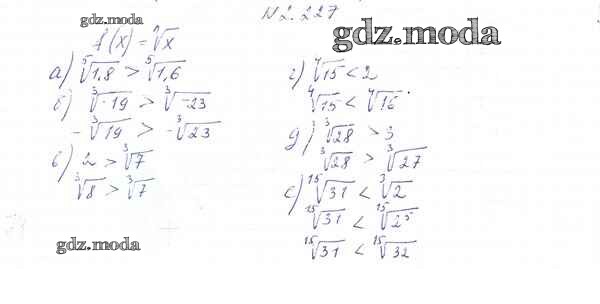 N 2.227
gdz.moda
gdz.moda
f(x) = ⁿ√x
а) ⁵√1,8 > ⁵√1,6
б) ³√-19 > ³√-23
- ³√19 > - ³√23
в) 2 > ³√7
³√8 > ³√7
г) ⁴√15 < 2
⁴√15 < ⁴√16.
д) ³√28 > 3
³√28 > ³√27
е) ¹⁵√31 < ³√2
¹⁵√31 < ¹⁵√2⁵
¹⁵√31 < ¹⁵√32
gdz.moda